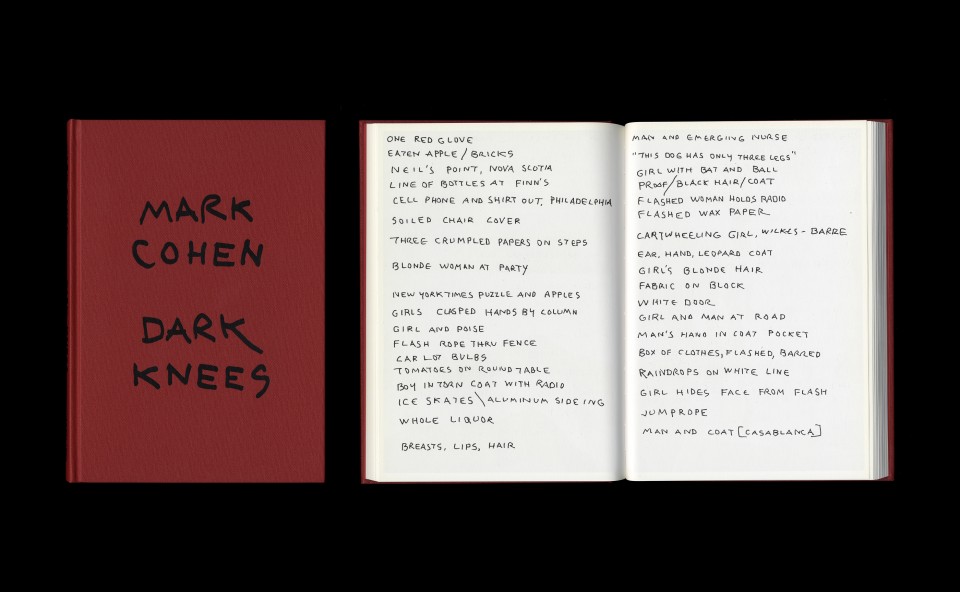 MARK
COHEN
DARK
KNEES
ONE RED GLOVE
EATEN APPLE/BRICKS
NEIL'S POINT, NOVA SCOTIA
LINE OF BOTTLES AT FINN'S
CELL PHONE AND SHIRT OUT, PHILADELPHIA
SOILED CHAIR COVER
THREE CRUMPLED PAPERS ON STEPS
BLONDE WOMAN AT PARTY
NEW YORK TIMES PUZZLE AND APPLES
GIRLS CUSPED HANDS BY COLUMN
GIRL AND POISE
FLASH ROPE THRU FENCE
CAR LOT BULBS
TOMATOES ON ROUND TABLE
BOY IN TORN COAT WITH RADIO
ICE SKATES\ALUMINUM SIDEING
WHOLE LIQUOR
BREASTS, LIPS, HAIR
MAN AND EMERGIING NURSE
"THIS DOG HAS ONLY THREE LEGS"
GIRL WITH BAT AND BALL
PROOF/BLACK HAIR/COAT
FLASHED WOMAN HOLDS RADIO
FLASHED WAX PAPER
CARTWHEELING GIRL, WILKES-BARRE
EAR, HAND, LEOPARD COAT
GIRL'S BLONDE HAIR
FABRIC ON BLOCK
WHITE DOOR
GIRL AND MAN AT ROAD
MAN'S HAND IN COAT POCKET
BOX OF CLOTHES, FLASHED, BARRED
RAINDROPS ON WHITE LINE
GIRL HIDES FACE FROM FLASH
JUMPROPE
MAN AND COAT [CASABLANCA]